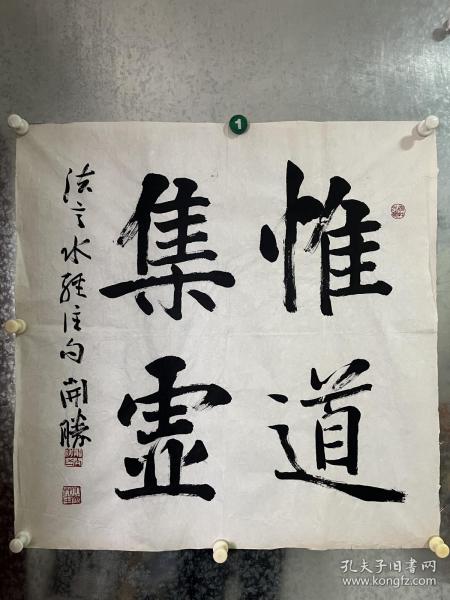 惟道
集虚
法言水經注句 開勝
1
孔夫子旧书网
www.kongfz.com